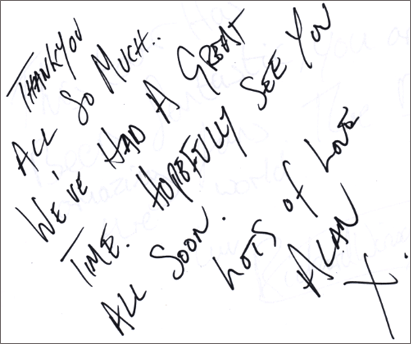 THANKYOU
ALL SO MUCH..
WE'VE HAD A GREAT
TIME. HOPEFULLY SEE YOU
ALL SOON.
LOTS OF LOVE
ALAN
X.